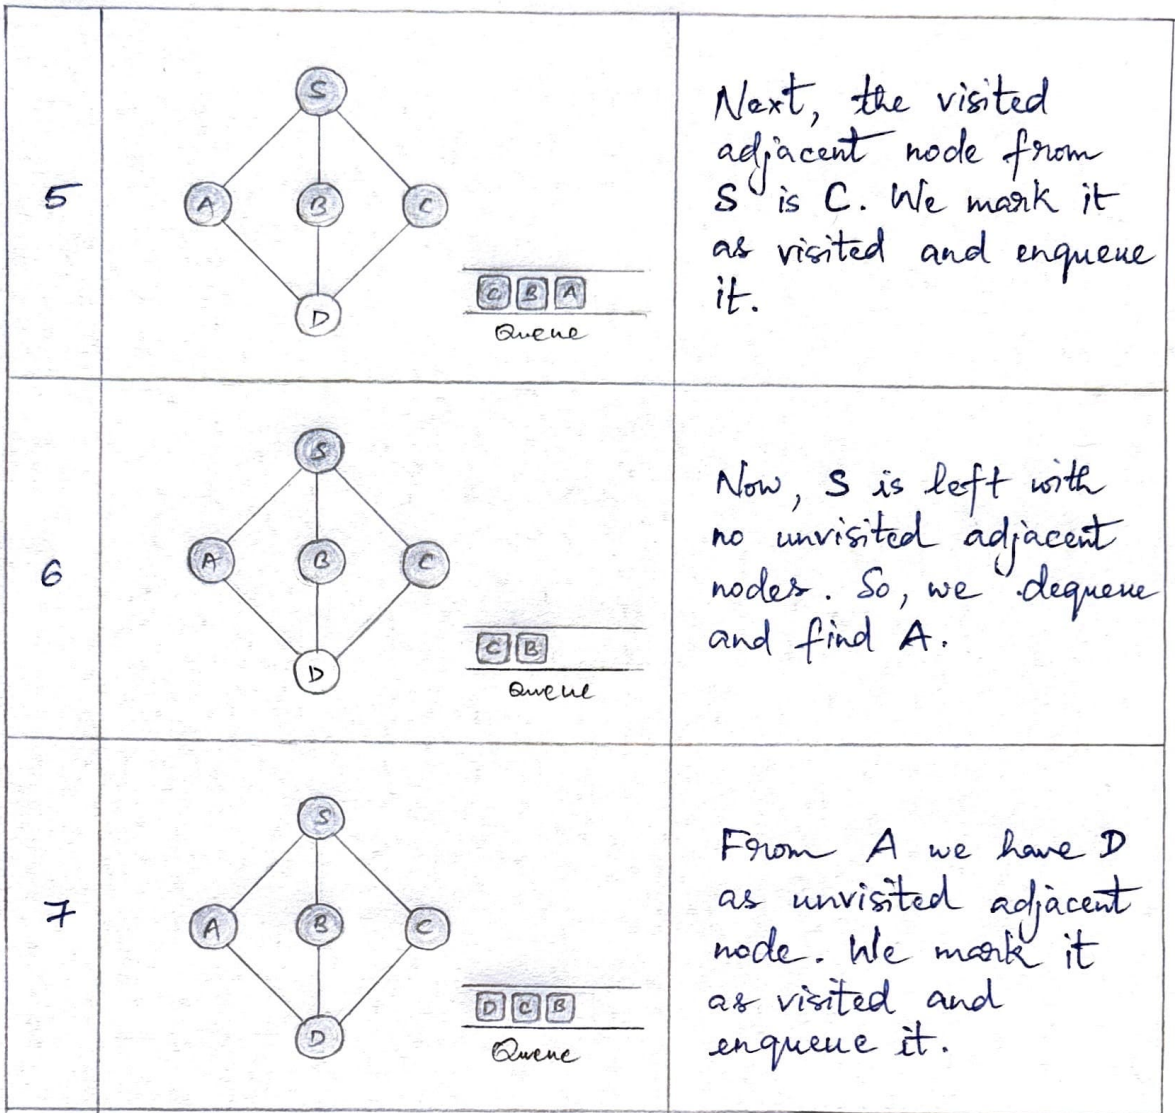 5
S
A B C
D
C B A
Queue
Next, the visited
adjacent node from
S is C. We mark it
as visited and enqueue
it.
6
S
A B C
D
C B
Queue
Now, S is left with
no unvisited adjacent
nodes. So, we dequeue
and find A.
7
S
A B C
D
D C B
Queue
From A we have D
as unvisited adjacent
node. We mark it
as visited and
enqueue it.